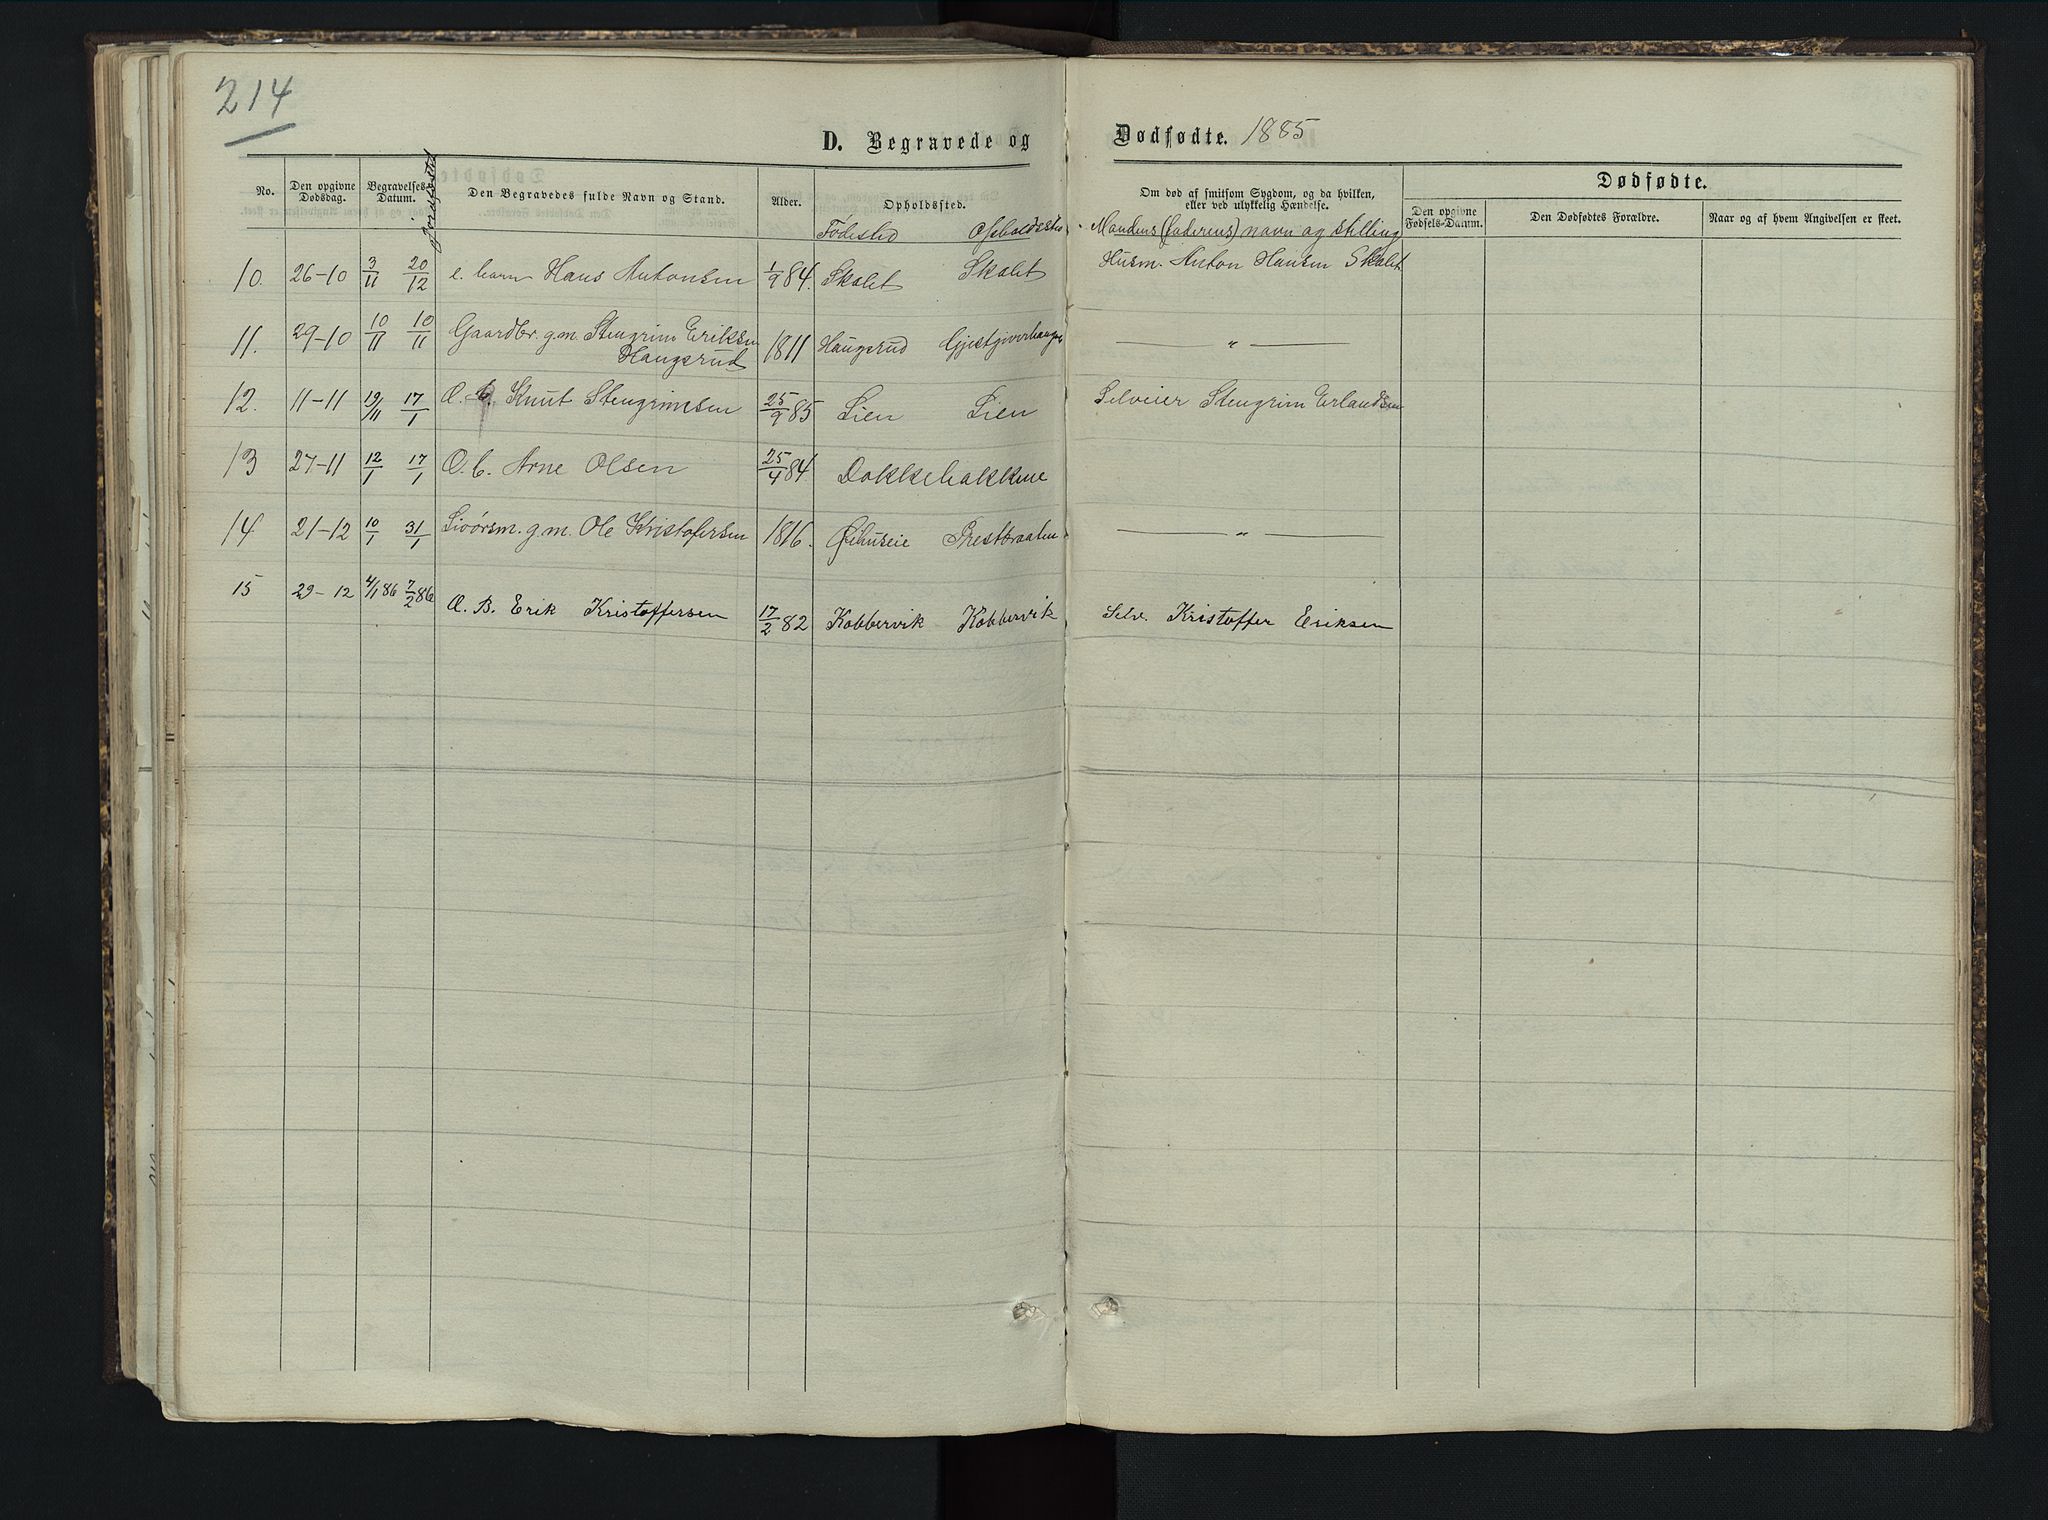 214
D. Begravede og Dødfødte. 1885
No. Den opgivne Dødsdag. Begravelses-Datum. Jordfæsted Den Begravedes fulde Navn og Stand. Alder. Opholdssted. Om død af smitsom Sygdom, og da hvilken, eller ved ulykkelig Hændelse. Dødfødte.
Den opgivne Fødsels-Datum. Den Dødfødtes Forældre. Naar og af hvem Angivelsen er skeet.
Fødested Opholdssted Mandens (faderens) navn og stilling
10. 26-10 3/11 20/12 e. barn Hans Antonsen 1/9 84. Skalet Skalet Husm. Anton Hansen Skalet
11. 29-10 10/11 10/11 Gaardbr. g.m. Stengrim Eriksen 1811 Haugsrud Gjestgiverhaugen — „ —
Haugsrud
12. 11-11 19/11 17/1 Æ. b. Knut Stengrimsen 25/9 85 Lien Lien Selveier Stengrim Erlandsen
13 27-11 12/1 17/1 Æ. b. Arne Olsen 25/4 84. Dokkebakkene
14 21-12 10/1 31/1 g.m. Ole Kristofersen 1816. Prestbraaten — „ —
15 29-12 4/1 86 7/2 86 Æ. B. Erik Kristoffersen 17/2 82 Kobbervik Kobbervik Selv. Kristoffer Eriksen